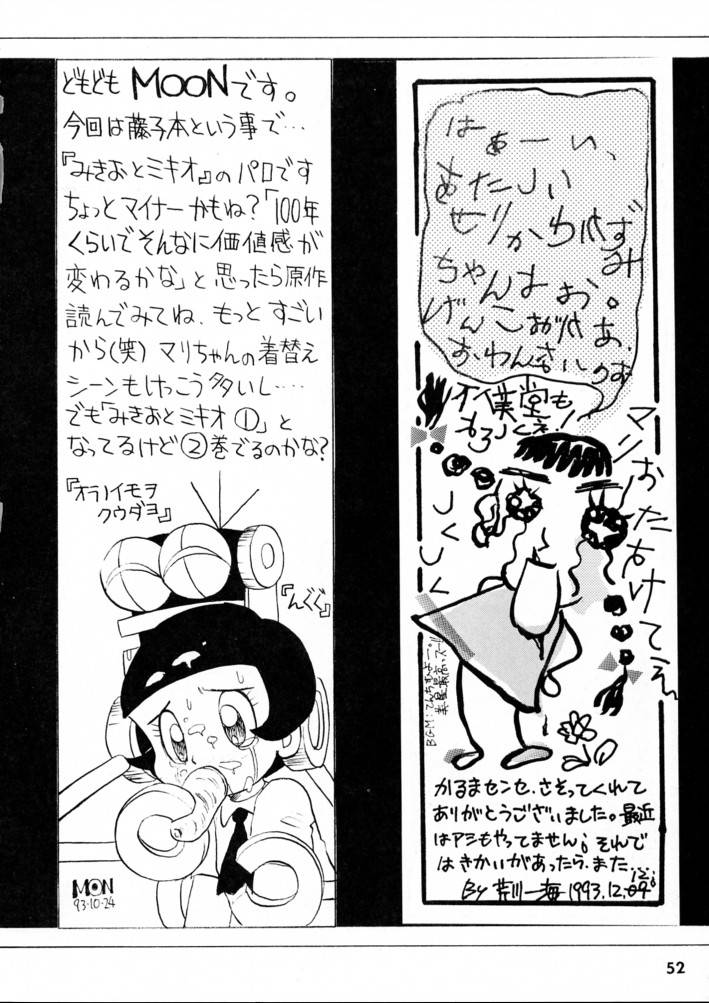 どもども MOONです。
今回は藤子本という事で…
『みきおとミキオ』のパロです
ちょっとマイナーかもね?「100年
くらいでそんなに価値感が
変わるかな」と思ったら原作
読んでみてね、もっとすごい
から(笑) マリちゃんの着替え
シーンもけっこう多いし‥‥
でも「みきおとミキオ①」と
なってるけど②巻でるのかな?
『オラノイモヲ
クウダヨ』
『んぐぐ』
MOON
93・10・24
はぁーい、
あたしい
せりかわはずみ
ちゃんよぉ。
げんこぉがはぁ、
マリおたすけてえ
しくしく
かるまセンセ、さそってくれて
ありがとうございました。最近
はアシもやってません; それで
はきかいがあったら、また
By 芹川一海 1993.12.
52